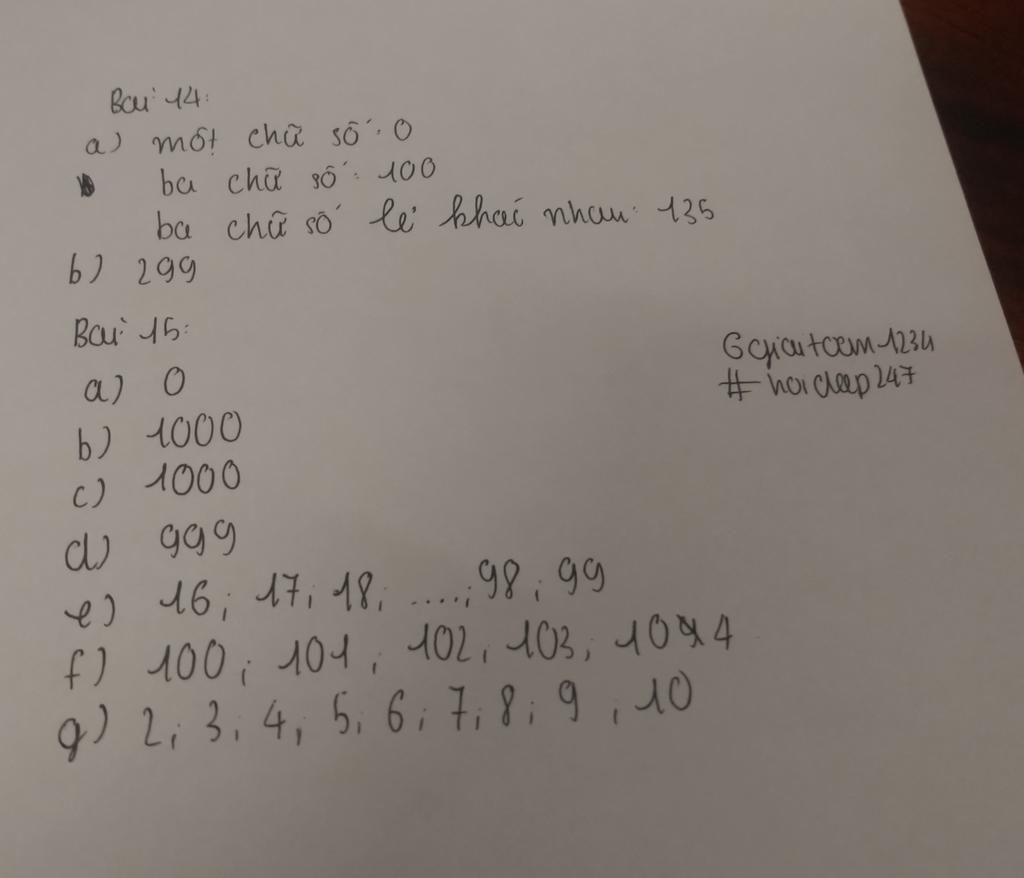 Bài 14:
a) một chữ số: 0
ba chữ số: 100
ba chữ số lẻ khác nhau: 135
b) 299
Bài 15:
a) 0
b) 1000
c) 1000
d) 999
e) 16; 17; 18; ....; 98; 99
f) 100; 101; 102; 103; 104
g) 2; 3; 4; 5; 6; 7; 8; 9; 10
#hoidap247